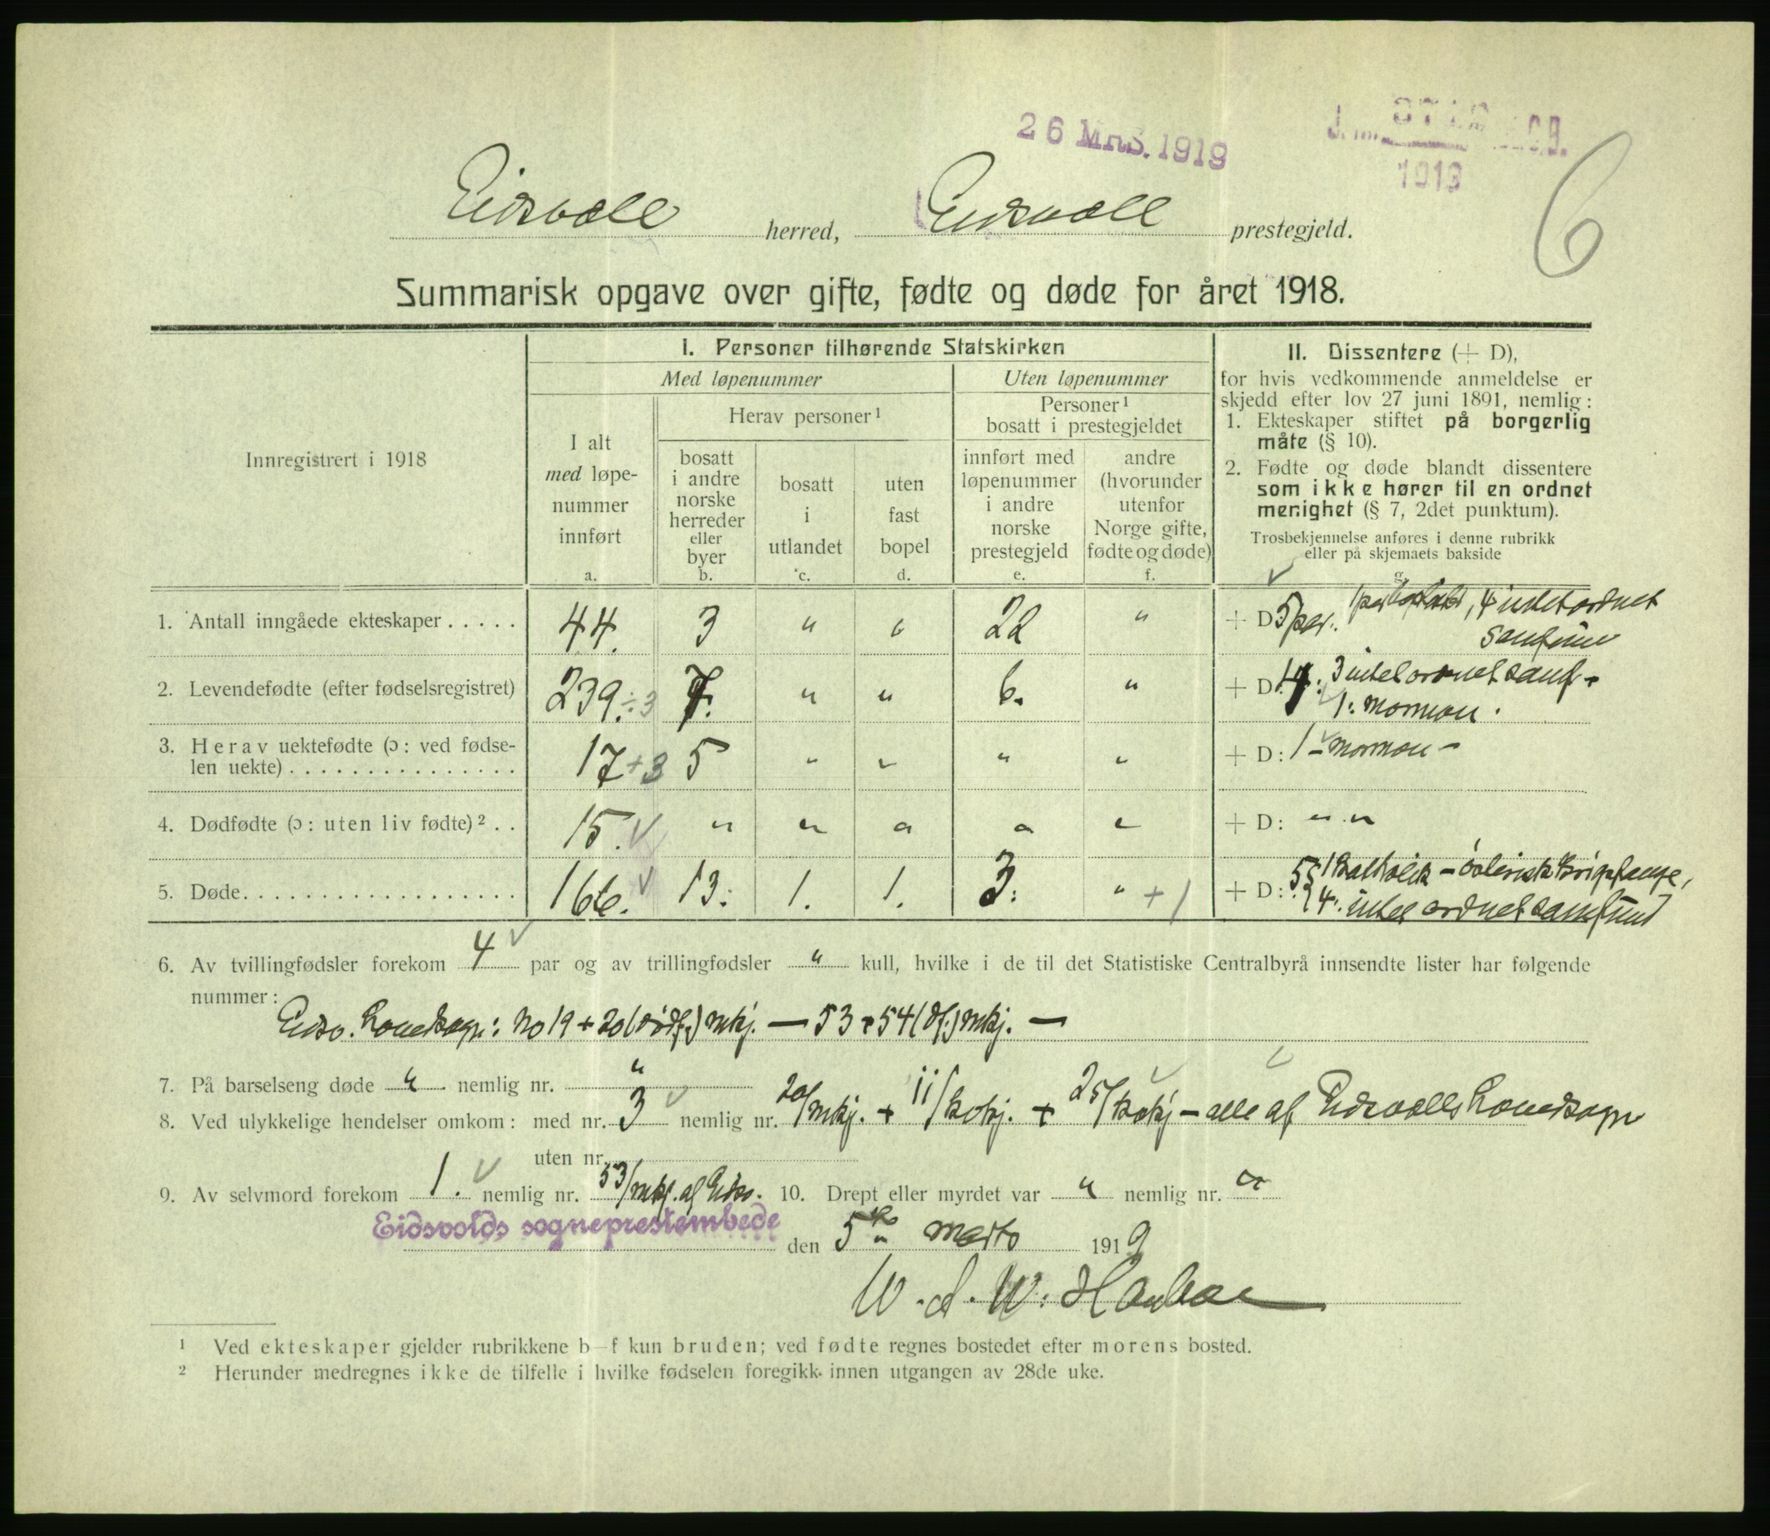 26 MRS. 1919
1919
6
Eidsvoll herred, Eidsvoll prestegjeld.
Summarisk opgave over gifte, fødte og døde for året 1918.
Innregistrert i 1918
I. Personer tilhørende Statskirken
Med løpenummer
Uten løpenummer
I alt
med løpe-
nummer
innført
a.
Herav personer¹
bosatt
i andre
norske
herreder
eller
byer
b.
bosatt
i
utlandet
c.
uten
fast
bopel
d.
Personer¹
bosatt i prestegjeldet
innført med
løpenummer
i andre
norske
prestegjeld
e.
andre
(hvorunder
utenfor
Norge gifte,
fødte og døde)
f.
II. Dissentere (+ D),
for hvis vedkommende anmeldelse er
skjedd efter lov 27 juni 1891, nemlig:
1. Ekteskaper stiftet på borgerlig
måte (§ 10).
2. Fødte og døde blandt dissentere
som ikke hører til en ordnet
menighet (§ 7, 2det punktum).
Trosbekjennelse anføres i denne rubrikk
eller på skjemaets bakside
g.
1. Antall inngåede ekteskaper..... 44. 3 " " 22 " + D: 5 par. 4 intet ordnet
samfund
2. Levendefødte (efter fødselsregistret) 239. ÷3 7. " " 6. " + D: 4: 3 intet ordnet samf.
1. mormon.
3. Herav uektefødte (ɔ: ved fødse-
len uekte)................ 17 +3 5 " " " " + D: 1 - mormon -
4. Dødfødte (ɔ: uten liv fødte)².. 15. " " " " " + D: " "
5. Døde.................. 166. 13. 1. 1. 3. " +1 + D: 5: 1 katholik -
4. intet ordnet samfund
6. Av tvillingfødsler forekom 4 par og av trillingfødsler " kull, hvilke i de til det Statistiske Centralbyrå innsendte lister har følgende
nummer:
Eidsv. Hovedsogn: No 19 + 20 (dødf.) mkj. — 53 + 54 (df.) mkj. —
7. På barselseng døde " nemlig nr. "
8. Ved ulykkelige hendelser omkom: med nr. 3 nemlig nr. 20/mkj. + 11/kvkj. + 25/kvkj - alle af Eidsvolls Hovedsogn
uten nr.
9. Av selvmord forekom 1. nemlig nr. 53/mkj. af Eidsv. 10. Drept eller myrdet var " nemlig nr. "
Eidsvolds sogneprestembede den 5te marts 1919
¹ Ved ekteskaper gjelder rubrikkene b–f kun bruden; ved fødte regnes bostedet efter morens bosted.
² Herunder medregnes ikke de tilfelle i hvilke fødselen foregikk innen utgangen av 28de uke.